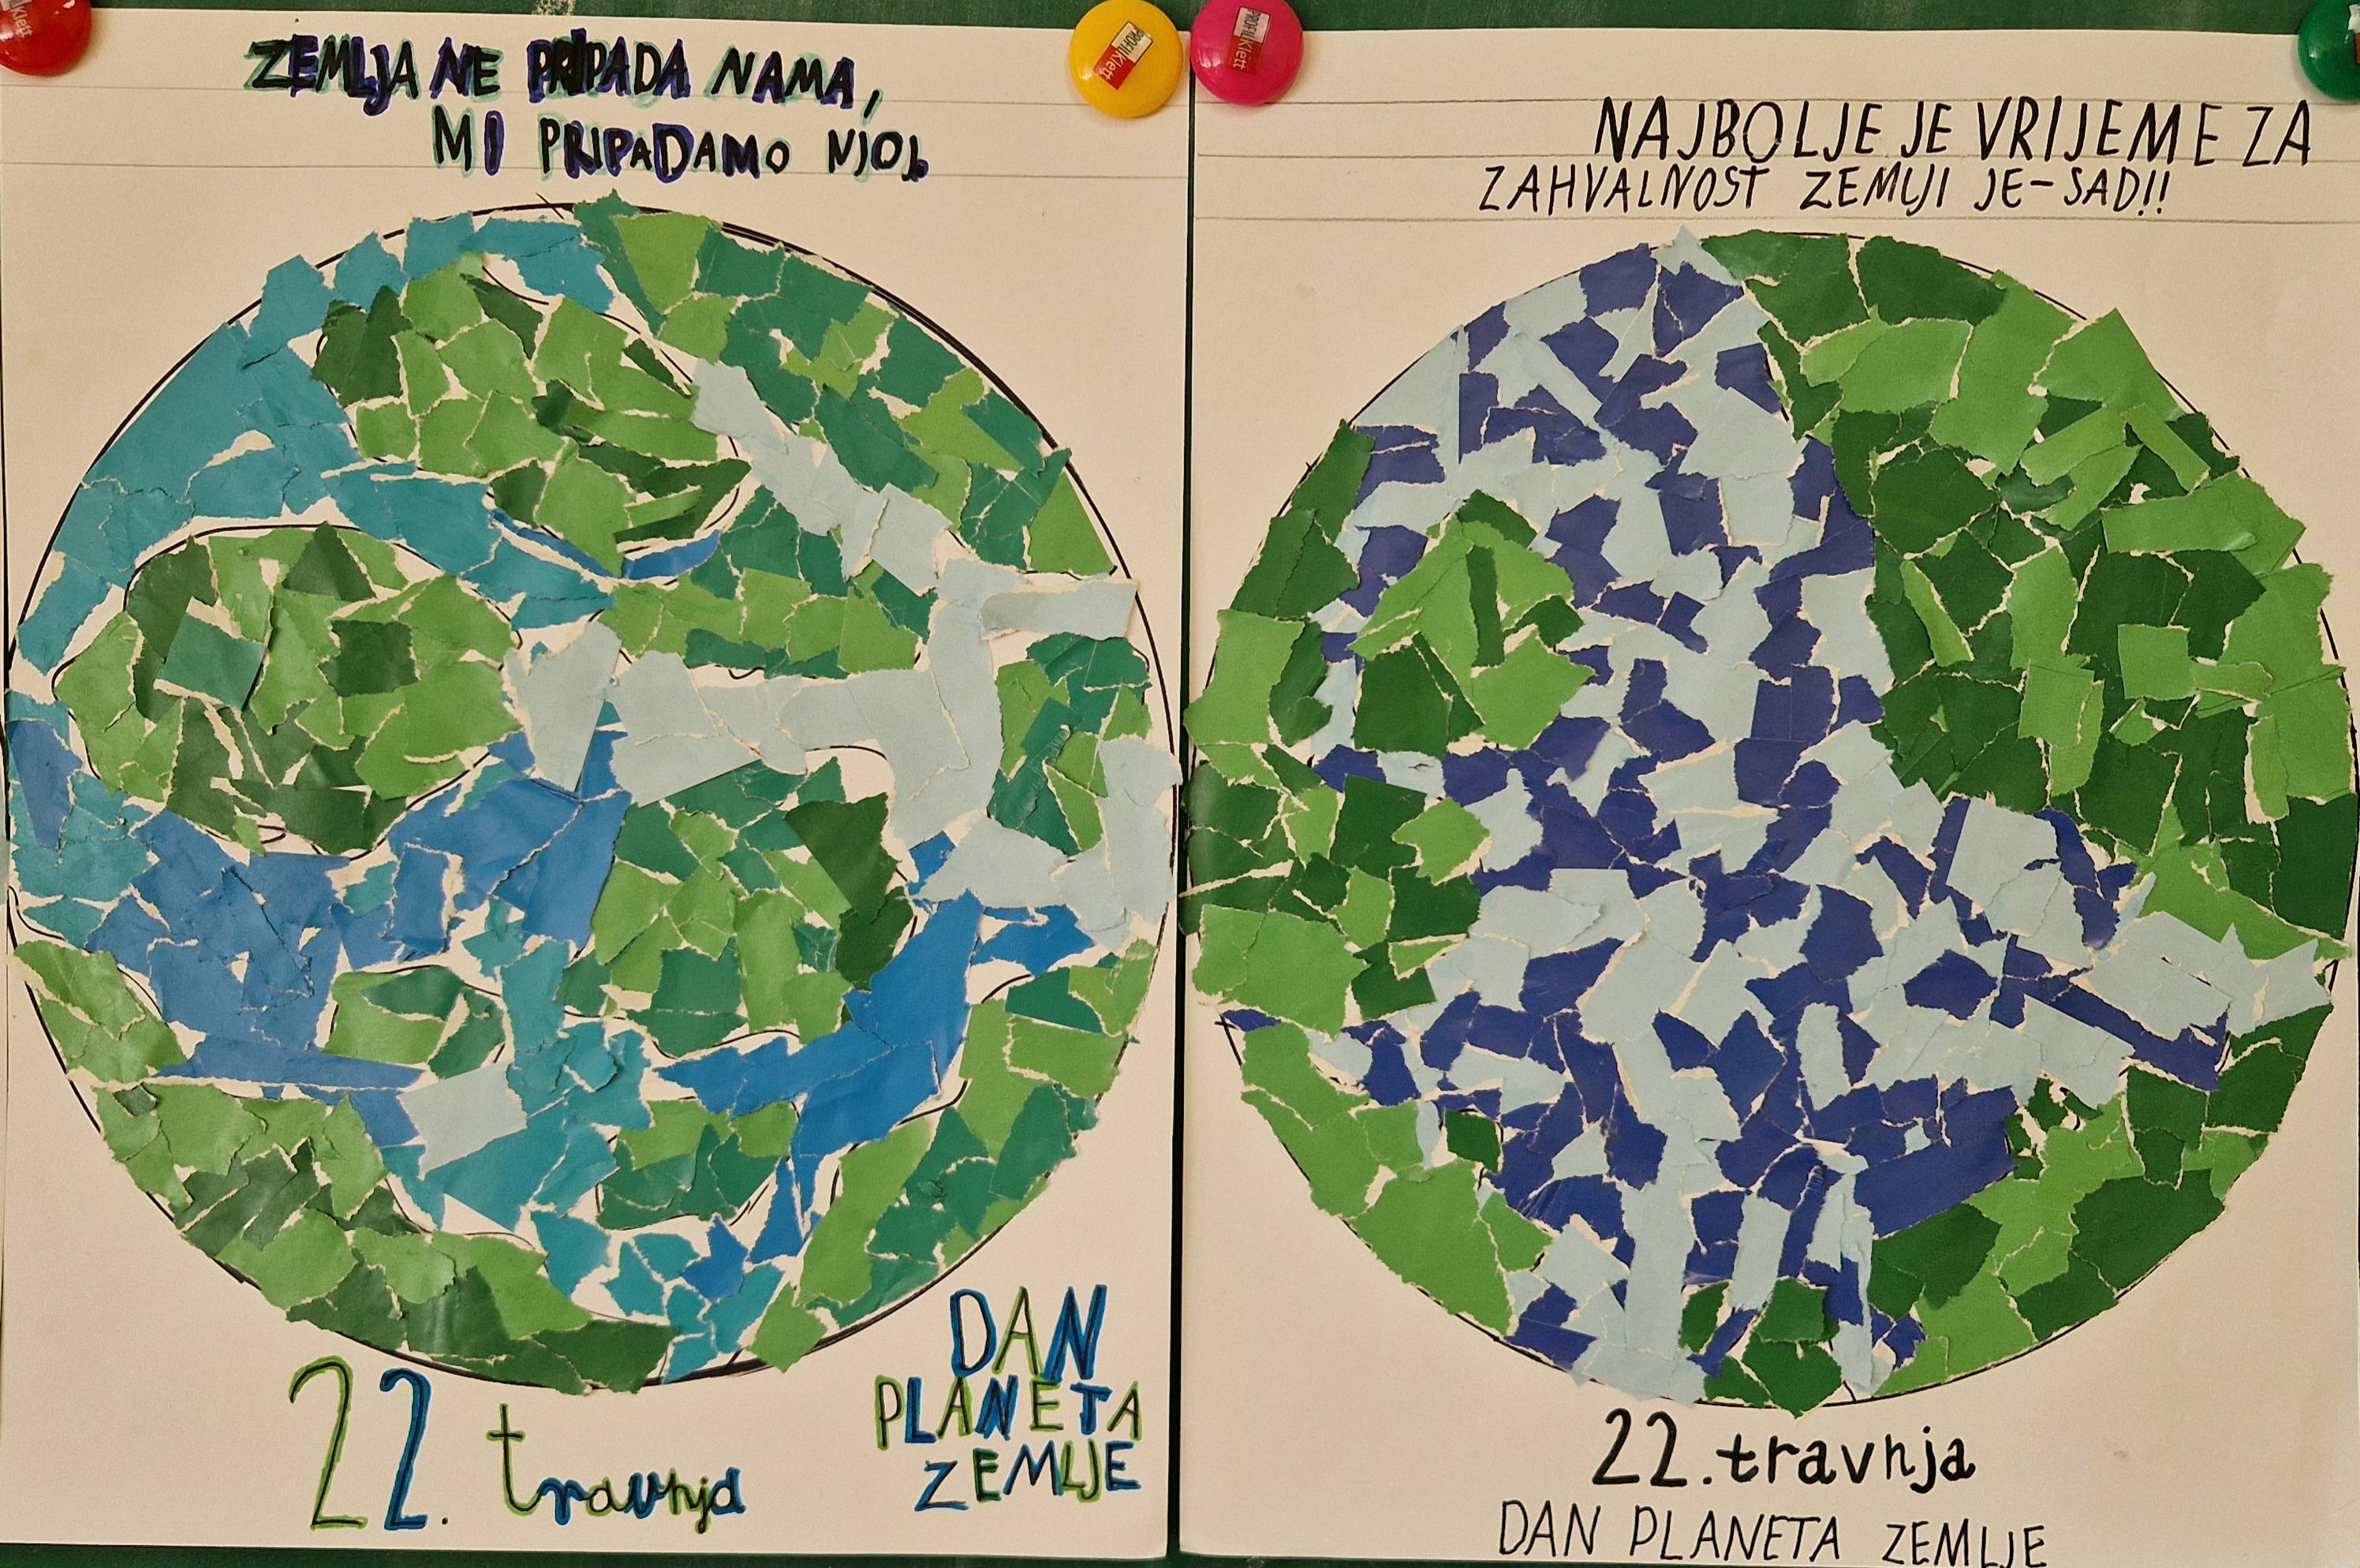 ZEMLJA NE PRIPADA NAMA,
MI PRIPADAMO NJOJ.
22. travnja
DAN
PLANETA
ZEMLJE
NAJBOLJE JE VRIJEME ZA
ZAHVALNOST ZEMLJI JE-SAD!!
22. travnja
DAN PLANETA ZEMLJE
PROFIL Klett
PROFIL Klett
Klett